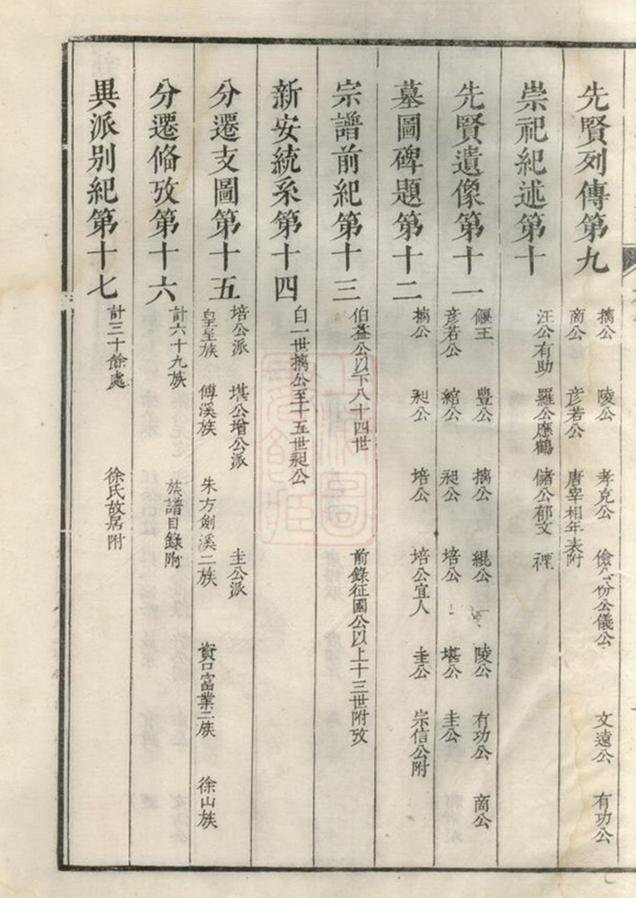 先賢列傳第九
摛公 陵公 孝克公 儉公份公儀公 文遠公 有功公
商公 彥若公 唐宰相年表附
崇祀紀述第十
汪公有助 羅公應鶴 儲公郁文
先賢遺像第十一
偃王 豐公 摛公 緄公 陵公 有功公 商公
彥若公 綰公 昶公 培公 堪公 圭公
墓圖碑題第十二
摛公 昶公 培公 培公宜人 圭公 宗信公附
宗譜前紀第十三
伯益公以下八十四世 前錄征國公以上十三世附攷
新安統系第十四
自一世摛公至十五世昶公
分遷支圖第十五
培公派 堪公增公派 圭公派
皇呈族 傅溪族 朱方劍溪二族 資口富業二族 徐山族
分遷俻攷第十六
計六十九族 族譜目錄附
異派別紀第十七
計三十餘處 徐氏故居附